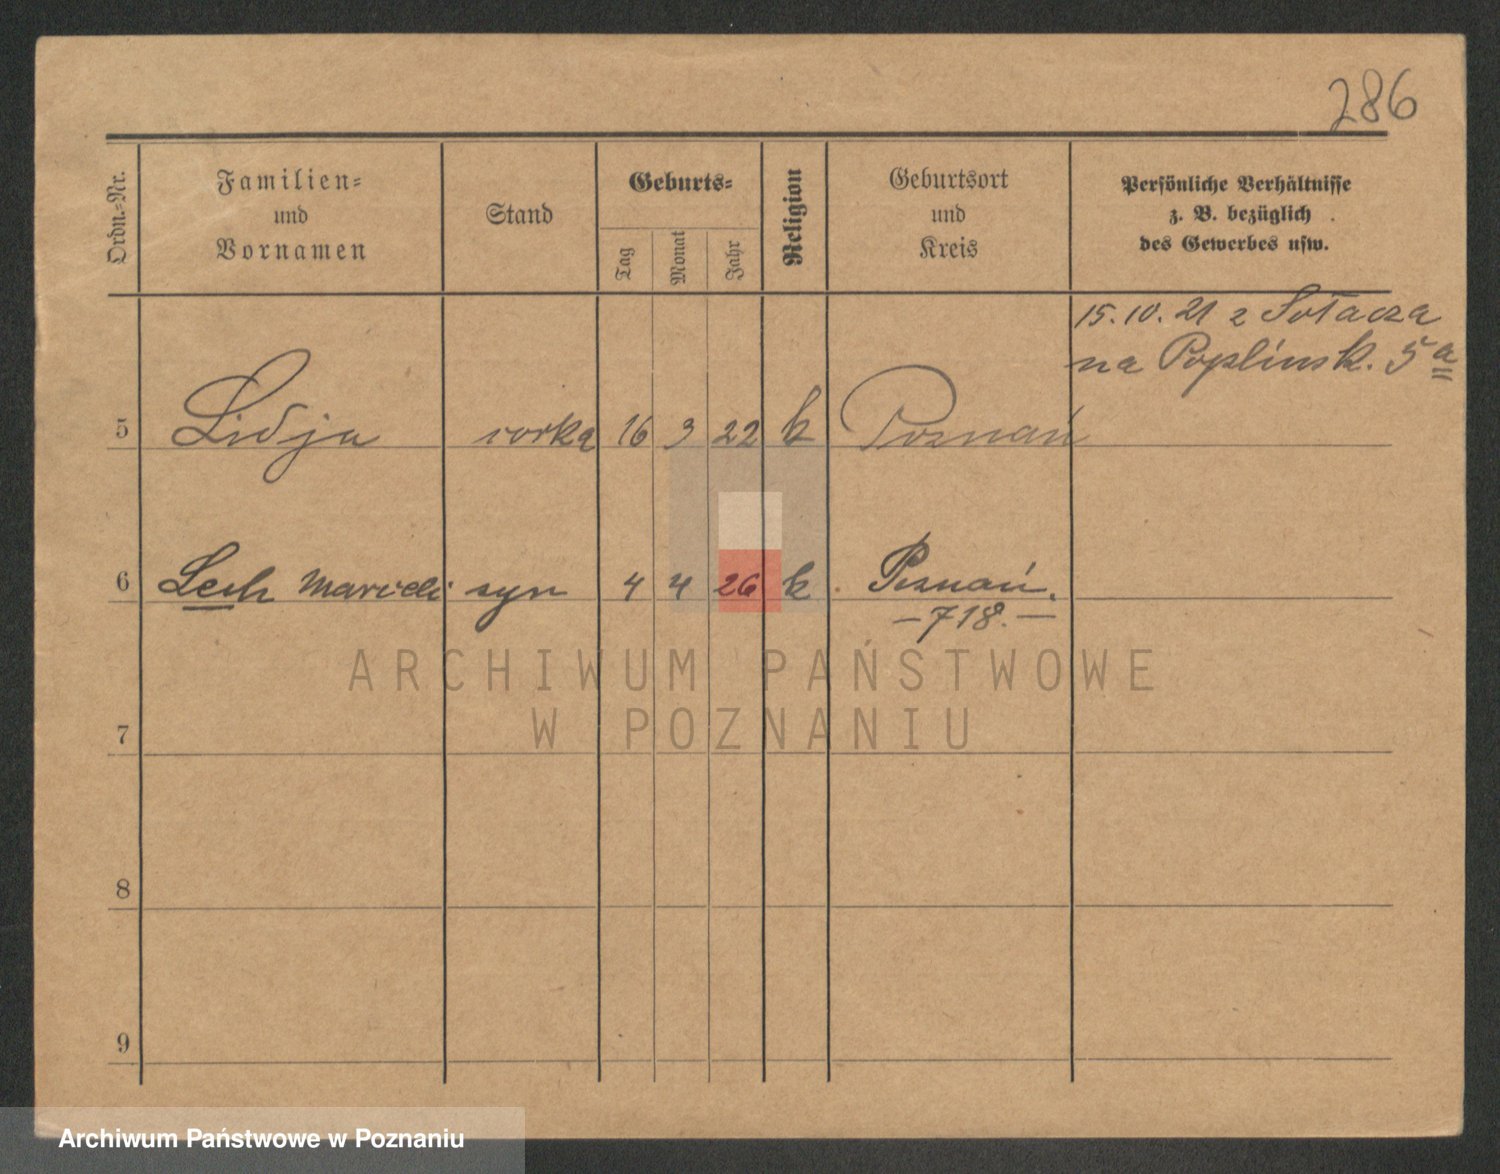 286
Ordn.-Nr.
Familien-
und
Vornamen
Stand
Geburts-
Tag
Monat
Jahr
Religion
Geburtsort
und
Kreis
Persönliche Verhältnisse
z. B. bezüglich
des Gewerbes usw.
15.10.21 z Sołacza
na Poplinsk. 5a
5 Lidja corka 16 3 22 k Poznań
6 Lech Marceli syn 4 4 26 k Poznań.
-718.-
ARCHIWUM PAŃSTWOWE
W POZNANIU
7
8
9
Archiwum Państwowe w Poznaniu